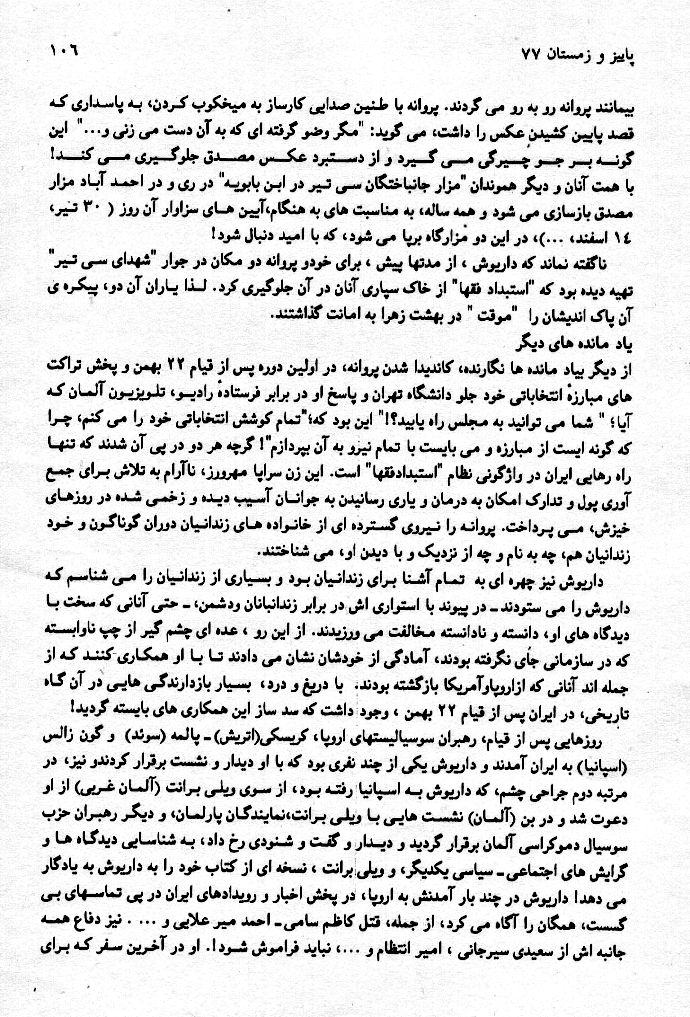 پاییز و زمستان ۷۷
۱۰۶
بیمانند پروانه رو به رو می گردند. پروانه با طنین صدایی کارساز به میخکوب کردن، به پاسداری که
قصد پایین کشیدن عکس را داشت، می گوید: "مگر وضو گرفته ای که به آن دست می زنی و..." این
گونه بر جو چیرگی می گیرد و از دستبرد عکس مصدق جلوگیری می کند!
با همت آنان و دیگر هموندان "مزار جانباختگان سی تیر در ابن بابویه" در ری و در احمد آباد مزار
مصدق بازسازی می شود و همه ساله، به مناسبت های به هنگام،آیین های سزاوار آن روز ( ۳۰ تیر،
۱٤ اسفند، ...)، در این دو مزارگاه برپا می شود، که با امید دنبال شود!
ناگفته نماند که داریوش ، از مدتها پیش ، برای خودو پروانه دو مکان در جوار "شهدای سی تیر"
تهیه دیده بود که "استبداد فقها" از خاک سپاری آنان در آن جلوگیری کرد. لذا یاران آن دو، پیکره ی
آن پاک اندیشان را "موقت " در بهشت زهرا به امانت گذاشتند.
یاد مانده های دیگر
از دیگر بیاد مانده ها نگارنده، کاندیدا شدن پروانه، در اولین دوره پس از قیام ۲۲ بهمن و پخش تراکت
های مبارزهٔ انتخاباتی خود جلو دانشگاه تهران و پاسخ او در برابر فرستادهٔ رادیو، تلویزیون آلمان که
آیا؛ " شما می توانید به مجلس راه یابید؟!" این بود که؛"تمام کوشش انتخاباتی خود را می کنم، چرا
که گونه ایست از مبارزه و می بایست با تمام نیرو به آن بپردازم"! گرچه هر دو در پی آن شدند که تنها
راه رهایی ایران در واژگونی نظام "استبدادفقها" است. این زن سراپا مهرورز، ناآرام به تلاش برای جمع
آوری پول و تدارک امکان به درمان و یاری رسانیدن به جوانان آسیب دیده و زخمی شده در روزهای
خیزش، می پرداخت. پروانه را نیروی گسترده ای از خانواده های زندانیان دوران گوناگون و خود
زندانیان هم، چه به نام و چه از نزدیک و با دیدن او، می شناختند.
داریوش نیز چهره ای به تمام آشنا برای زندانیان بود و بسیاری از زندانیان را می شناسم که
داریوش را می ستودند ـ در پیوند با استواری اش در برابر زندانبانان ودشمن، ـ حتی آنانی که سخت با
دیدگاه های او، دانسته و نادانسته مخالفت می ورزیدند. از این رو ، عده ای چشم گیر از چپ ناوابسته
که در سازمانی جای نگرفته بودند، آمادگی از خودشان نشان می دادند تا با او همکاری کنند که از
جمله اند آنانی که ازاروپاوآمریکا بازگشته بودند. با دریغ و درد، بسیار بازدارندگی هایی در آن گاه
تاریخی، در ایران پس از قیام ۲۲ بهمن ، وجود داشت که سد ساز این همکاری های بایسته گردید!
روزهایی پس از قیام، رهبران سوسیالیستهای اروپا، کریسکی(اتریش) ـ پالمه (سوئد) و گون زالس
(اسپانیا) به ایران آمدند و داریوش یکی از چند نفری بود که با او دیدار و نشست برقرار کردندو نیز، در
مرتبه دوم جراحی چشم، که داریوش به اسپانیا رفته بود، از سوی ویلی برانت (آلمان غربی) از او
دعوت شد و در بن (آلمان) نشست هایی با ویلی برانت،نمایندگان پارلمان، و دیگر رهبران حزب
سوسیال دموکراسی آلمان برقرار گردید و دیدار و گفت و شنودی رخ داد، به شناسایی دیدگاه ها و
گرایش های اجتماعی ـ سیاسی یکدیگر، و ویلی برانت ، نسخه ای از کتاب خود را به داریوش به یادگار
می دهد! داریوش در چند بار آمدنش به اروپا، در پخش اخبار و رویدادهای ایران در پی تماسهای بی
گسست، همگان را آگاه می کرد، از جمله، قتل کاظم سامی ـ احمد میر علایی و ... . نیز دفاع همه
جانبه اش از سعیدی سیرجانی ، امیر انتظام و ...، نباید فراموش شود!. او در آخرین سفر که برای